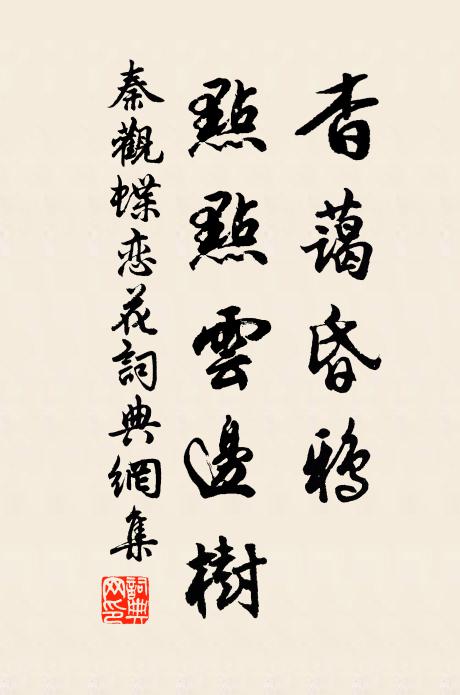 杳藹昏鴉
點點雲邊樹
秦觀蝶恋花詞典網集
詞典
网印